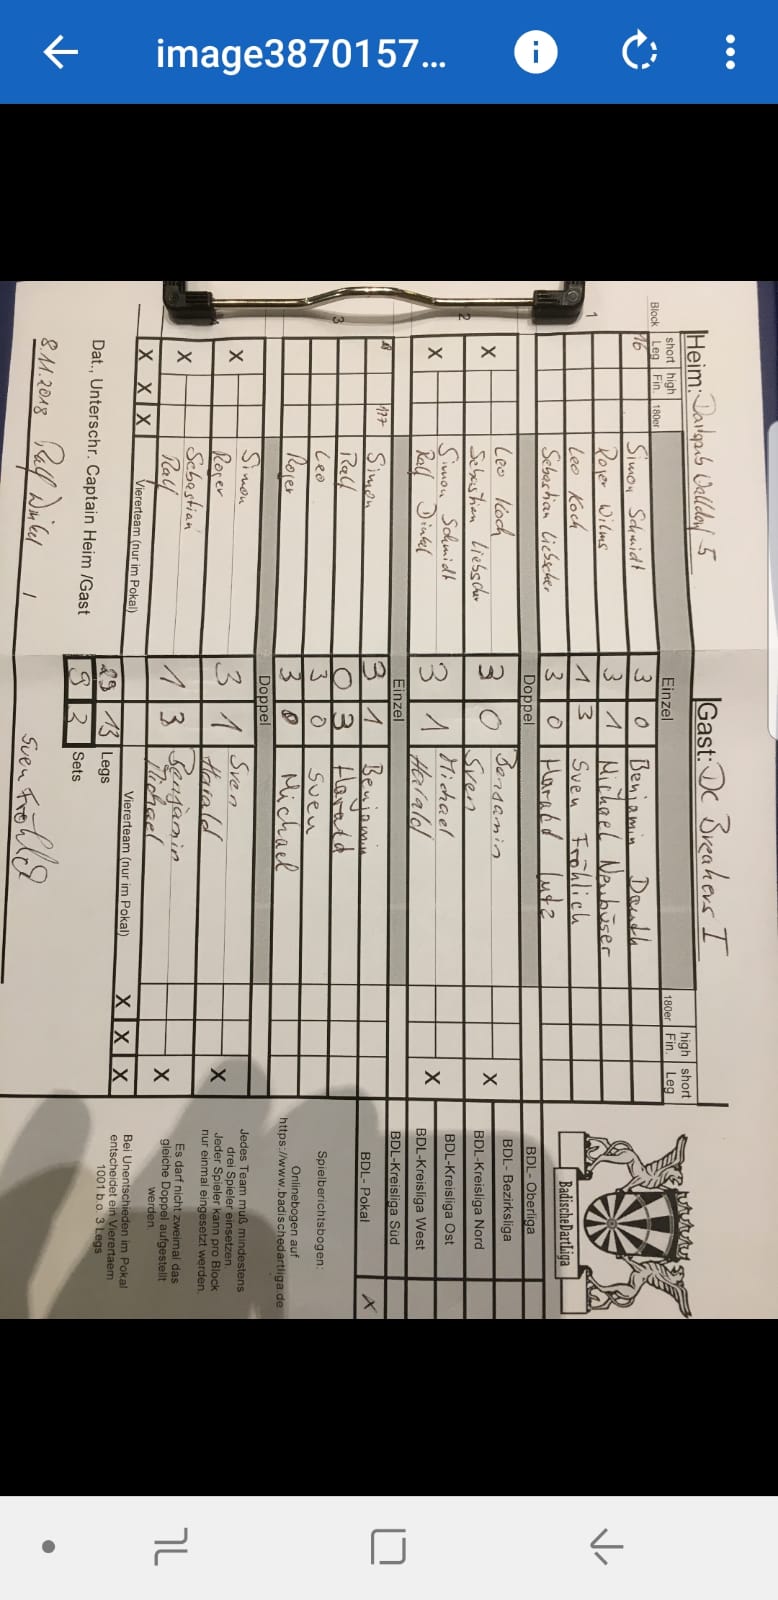 image3870157...
Heim: Dartpub Walldorf 5 Gast: DC Breakers I
short high short
Block Leg Fin. 180er Einzel 180er Fin. Leg
high
1
16 Simon Schmidt 3 0 Benjamin Dauth
Roger Wilms 3 1 Michael Neubüser
Leo Koch 1 3 Sven Fröhlich
Sebastian Liebscher 3 0 Harald Lutz
Doppel
2
X Leo Koch 3 0 Benjamin X
Sebastian Liebscher Sven
X Simon Schmidt 3 1 Michael X
Ralf Dinkel Harald
Einzel
3
18 177 Simon 3 1 Benjamin
Ralf 0 3 Harald
Leo 3 0 Sven
Roger 3 0 Michael
Doppel
4
X Simon 3 1 Sven X
Roger Harald
X Sebastian 1 3 Benjamin X
Ralf Michael
X X X Viererteam (nur im Pokal) Viererteam (nur im Pokal) X X X
29 13 Legs
9 3 Sets
Dat., Unterschr. Captain Heim /Gast
8.11.2018 Ralf Dinkel / Sven Fröhlich
BadischeDartLiga
BDL- Oberliga
BDL- Bezirksliga
BDL-Kreisliga Nord
BDL-Kreisliga Ost
BDL-Kreisliga West
BDL-Kreisliga Süd
BDL- Pokal X
Spielberichtsbogen:
Onlinebogen auf
https://www.badischedartliga.de
Jedes Team muß mindestens
drei Spieler einsetzen.
Jeder Spieler kann pro Block
nur einmal eingesetzt werden.
Es darf nicht zweimal das
gleiche Doppel aufgestellt
werden.
Bei Unentschieden im Pokal
entscheidet ein Vierertaem
1001 b.o. 3 Legs